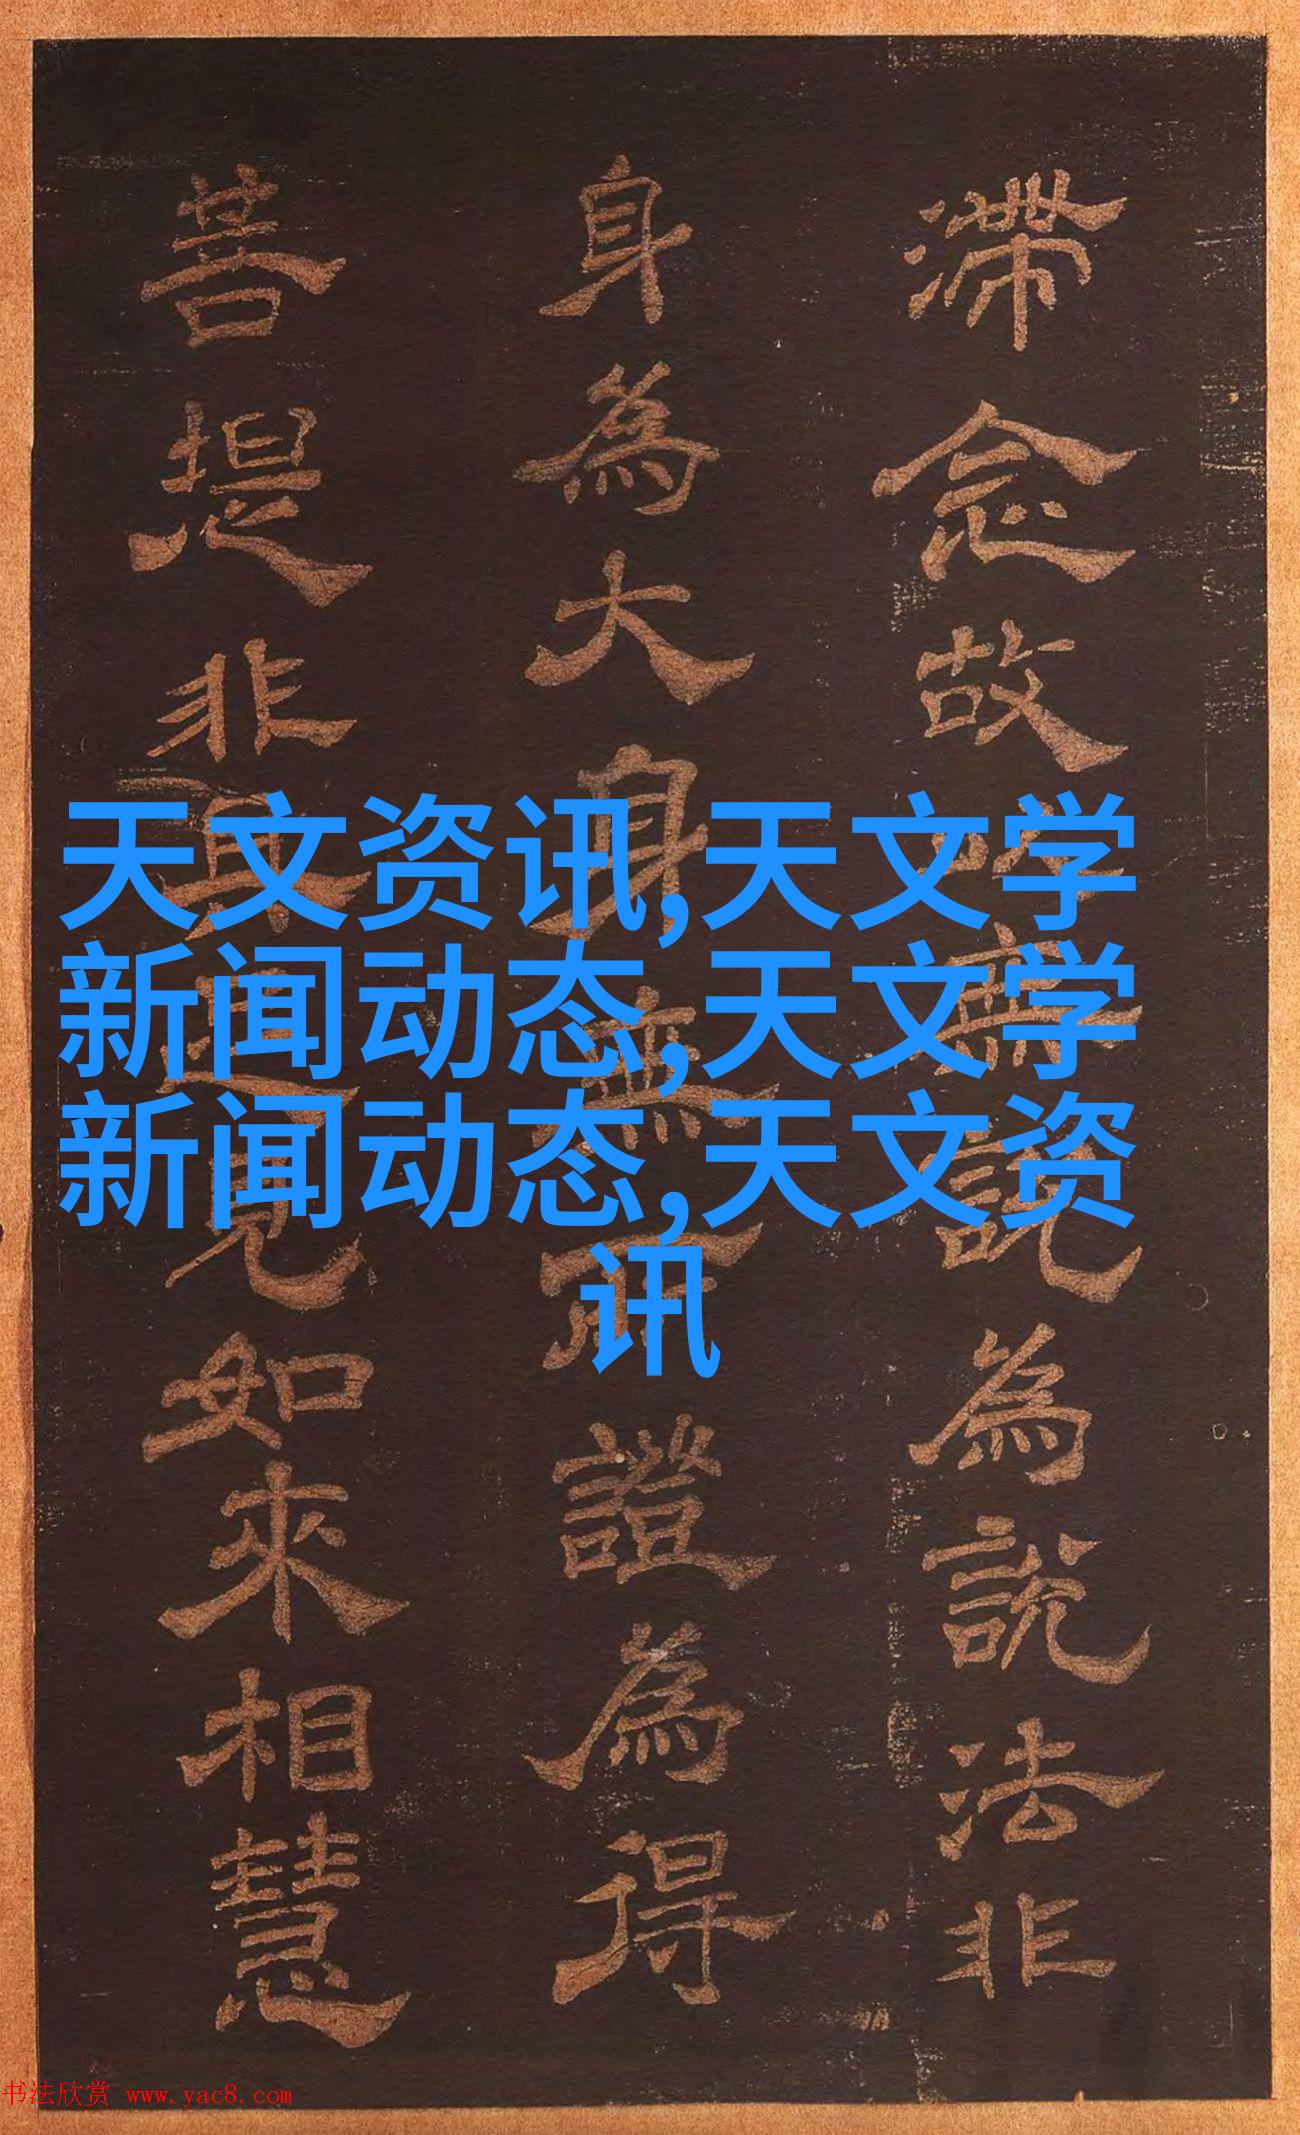 滞念故説無説為説法非
身為大身無所證為得
菩提非具足見如來相慧
天文资讯,天文学
新闻动态,天文学
新闻动态,天文资
讯
书法欣赏 www.yac8.com